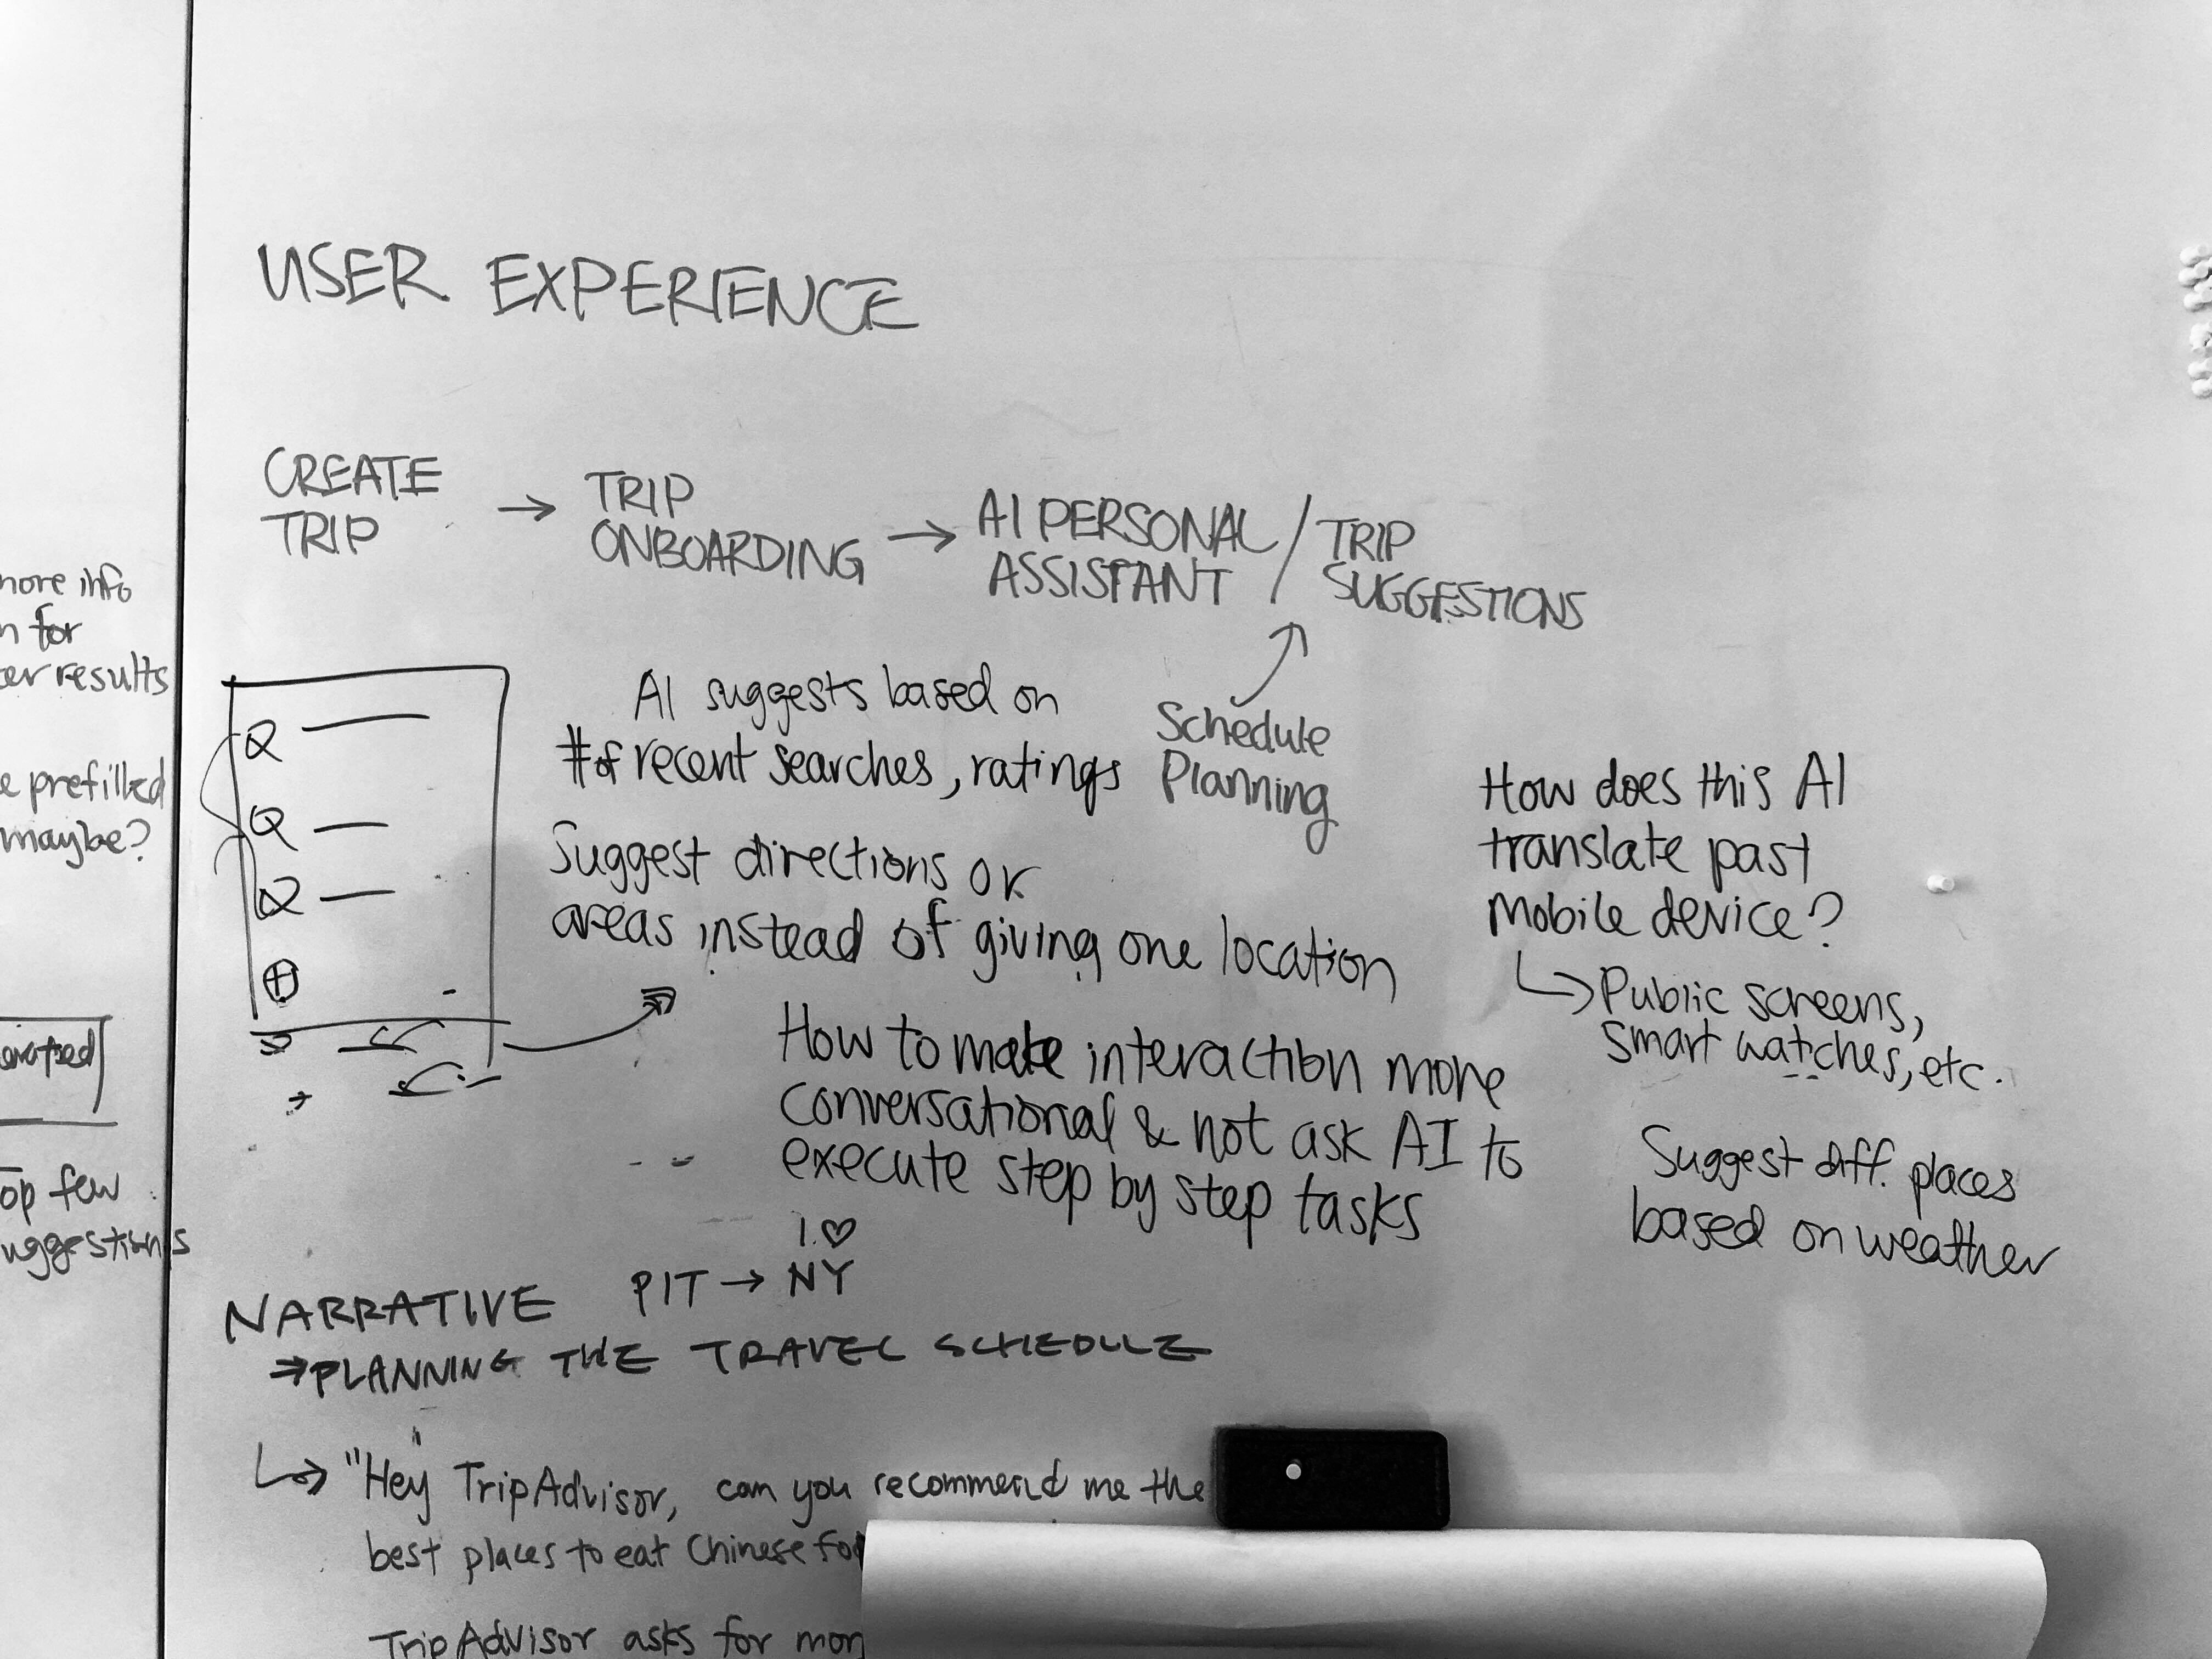 USER EXPERIENCE
CREATE
TRIP
→ TRIP
ONBOARDING
→ AI PERSONAL
ASSISTANT
/ TRIP
SUGGESTIONS
Schedule
Planning
Q
Q
Q
AI suggests based on
# of recent searches, ratings
Suggest directions or
areas instead of giving one location
How to make interaction more
conversational & not ask AI to
execute step by step tasks
How does this AI
translate past
mobile device?
Public screens,
smart watches, etc.
Suggest diff. places
based on weather
I ♡
PIT → NY
NARRATIVE
→ PLANNING THE TRAVEL SCHEDULE
"Hey" TripAdvisor, can you recommend me the
best places to eat Chinese
TripAdvisor asks for
more info
for
results
prefilled
maybe?
few